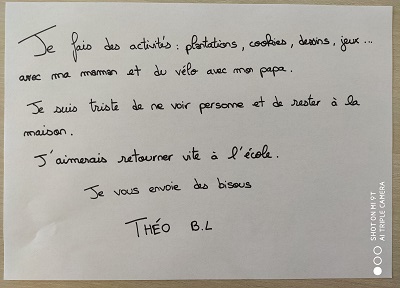 Je fais des activités : plantations, cookies, dessins, jeux...
avec ma maman et du vélo avec mon papa.
Je suis triste de ne voir personne et de rester à la
maison.
J'aimerais retourner vite à l'école.
Je vous envoie des bisous
THÉO B.L
SHOT ON MI 9T
AI TRIPLE CAMERA